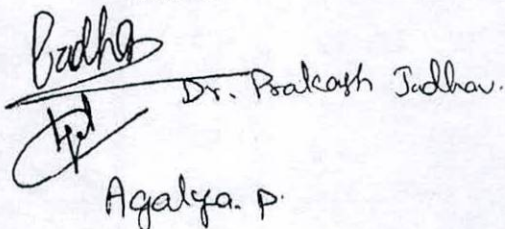 Dr. Prakash Jadhav.
Agalya. P.